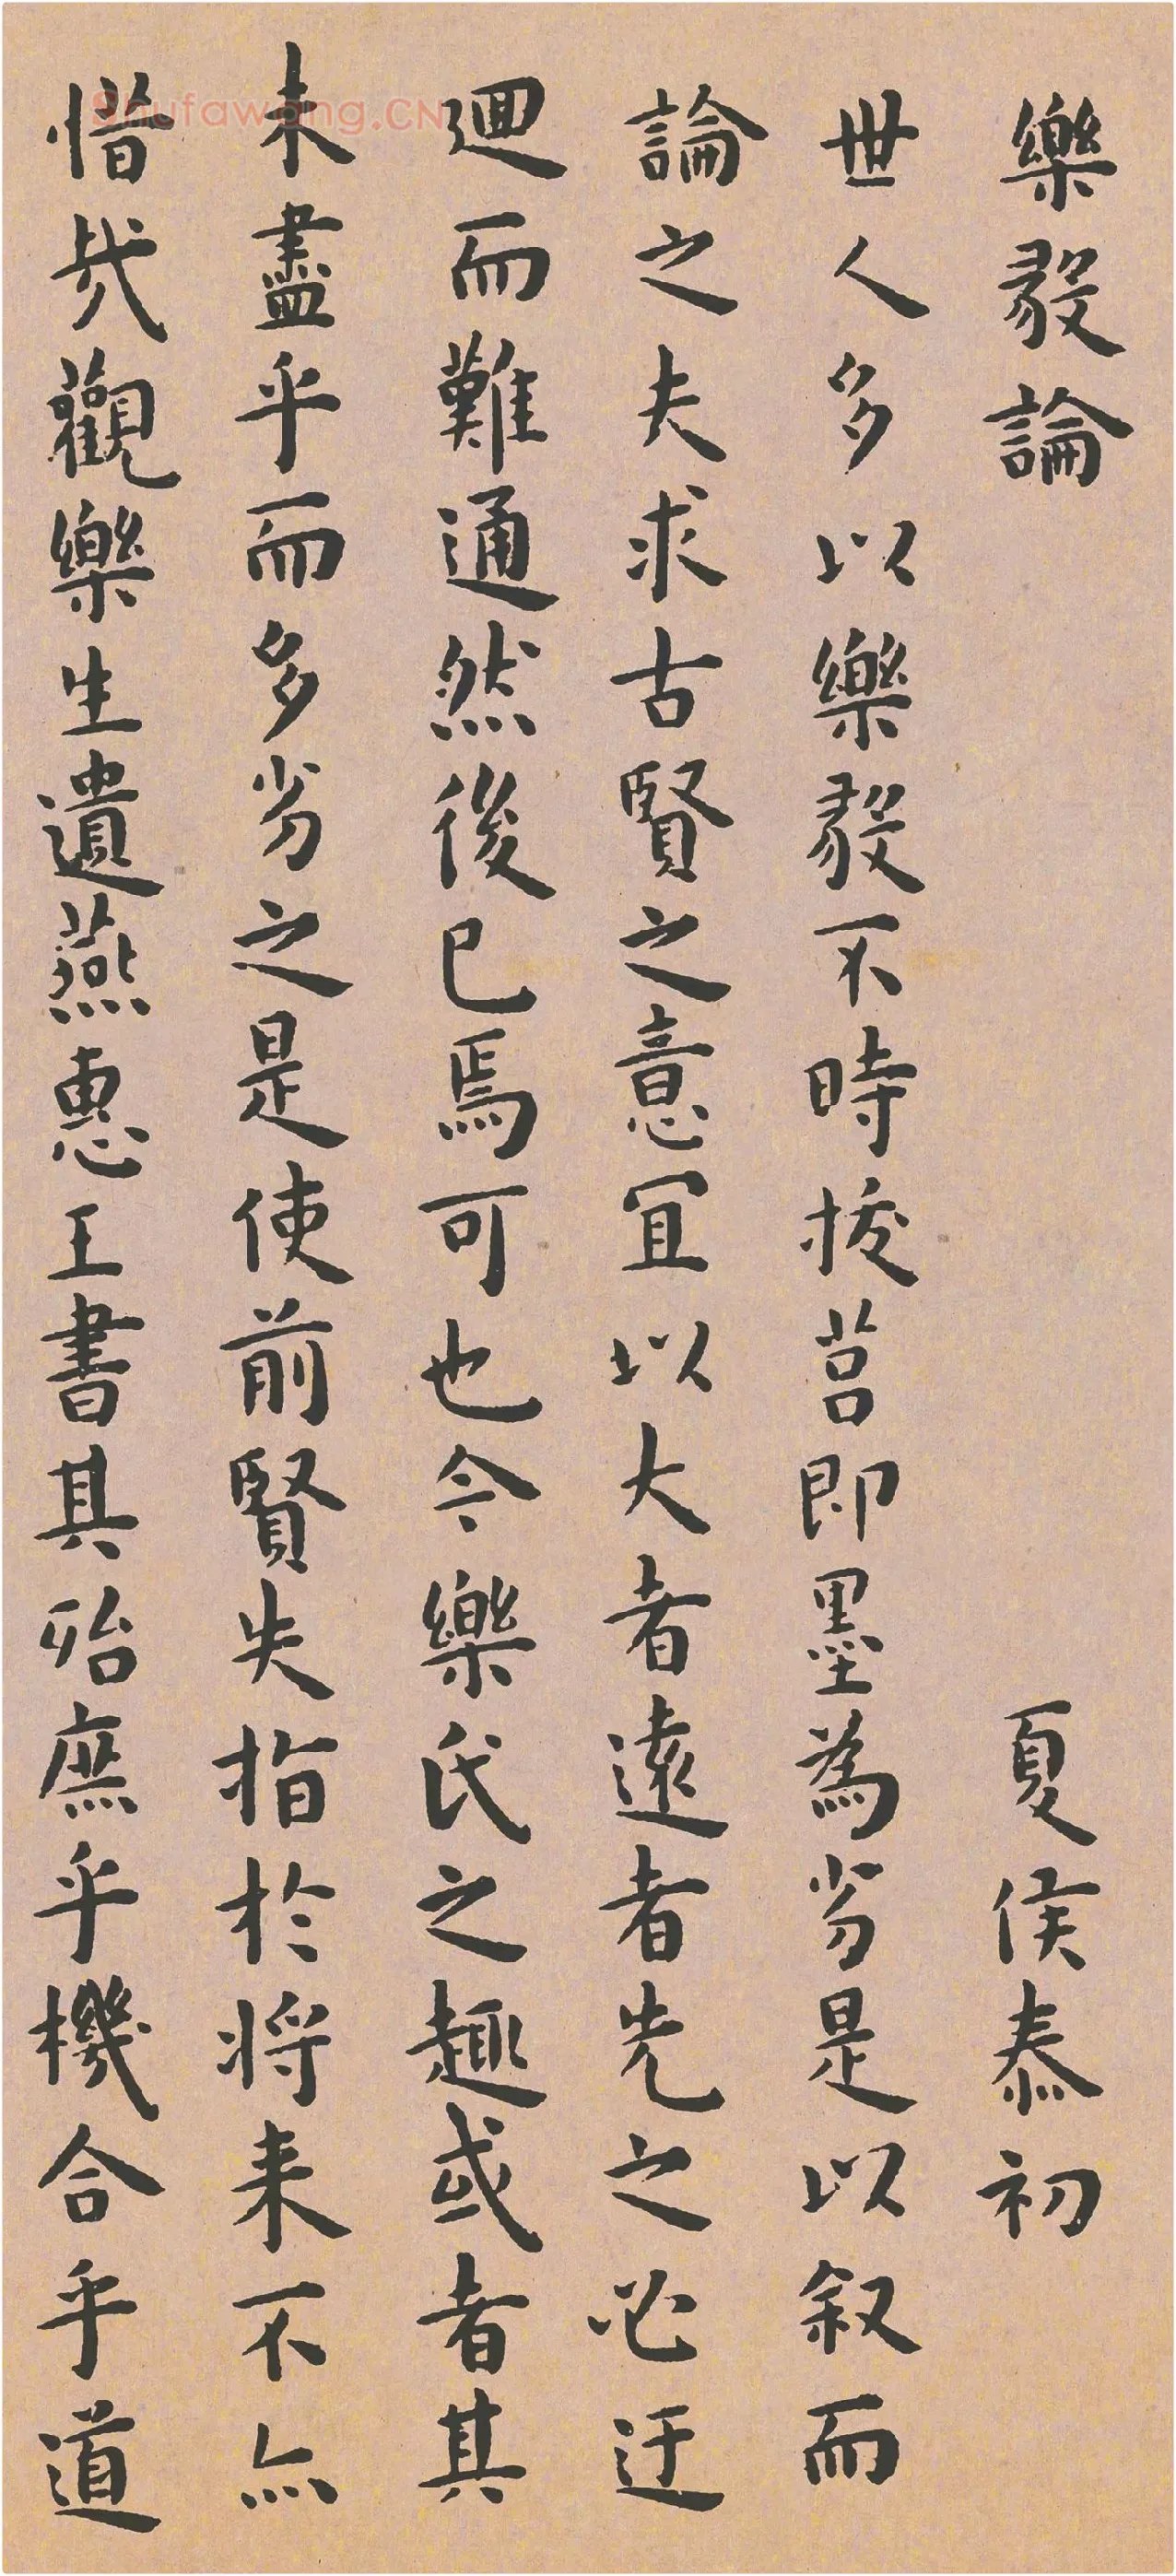 樂毅論 夏侯泰初
世人多以樂毅不時拔莒即墨為劣是以叙而
論之夫求古賢之意宜以大者遠者先之必迂
迴而難通然後已焉可也今樂氏之趣或者其
未盡乎而多劣之是使前賢失指於將来不亦
惜哉觀樂生遺燕惠王書其殆庶乎機合乎道
Shufawang.CN